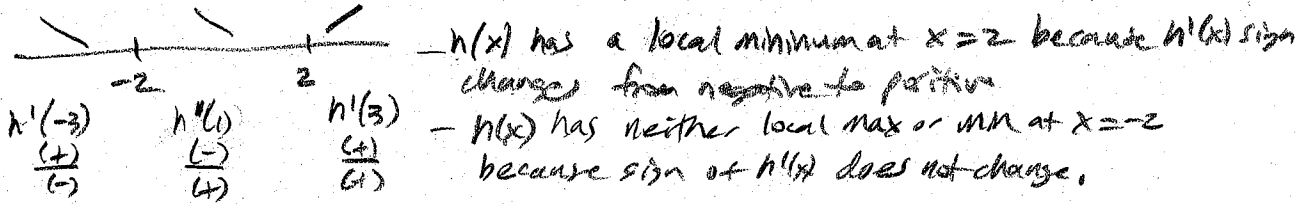 - h(x) has a local mininum at x=2 because h'(x) sign
changes from negative to positive
-2 2
h'(-3) h"(1) h'(3)
(+) (-) (+)
(-) (+) (+)
- h(x) has neither local max or min at x=-2
because sign of h'(x) does not change.